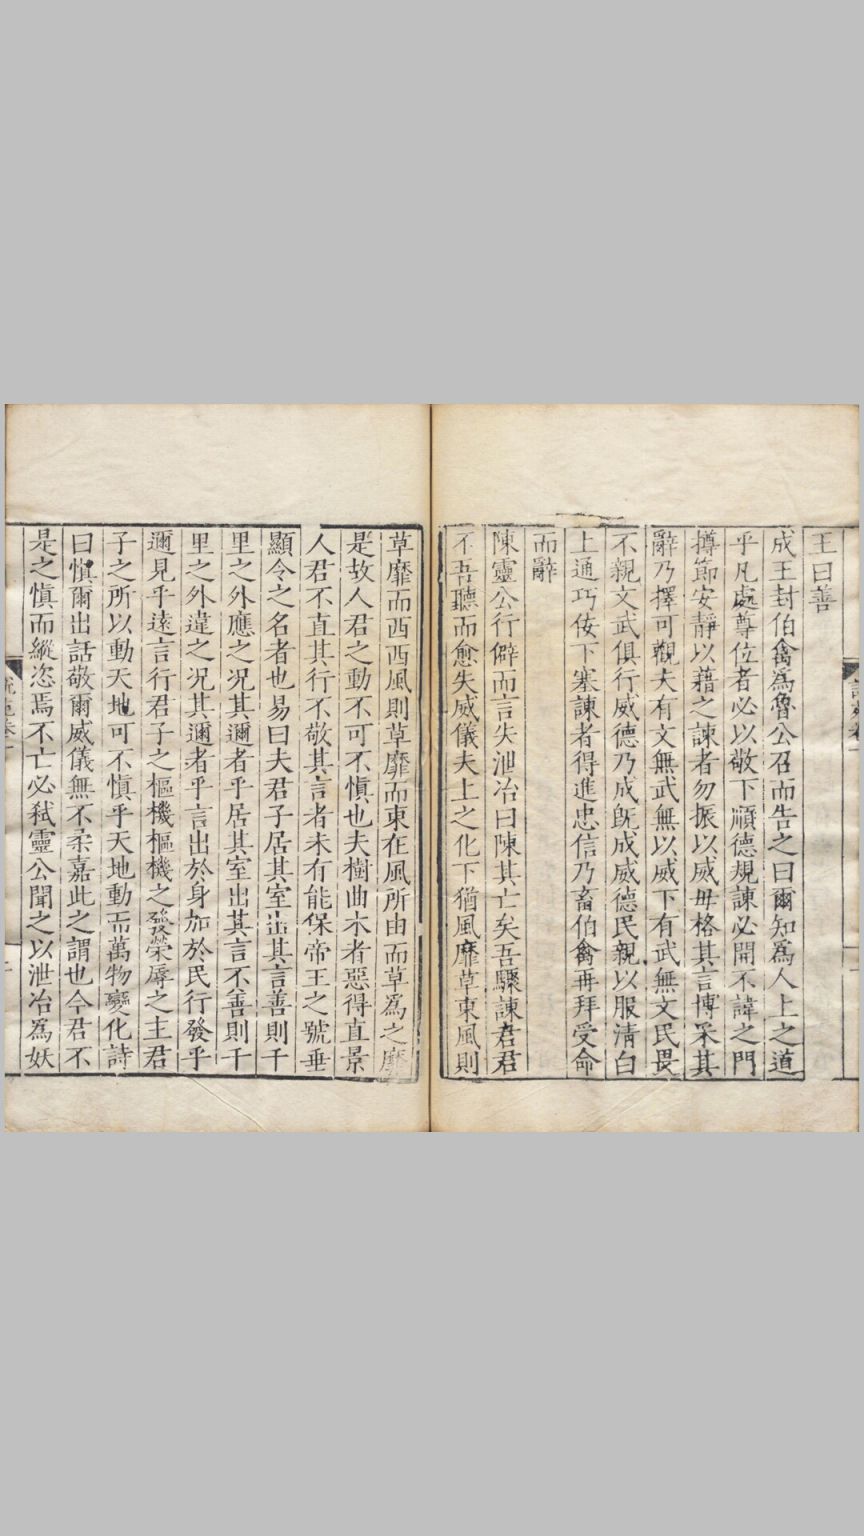 王曰善
成王封伯禽爲魯公召而告之曰爾知爲人上之道
乎凡處尊位者必以敬下順德規諫必開不諱之門
撙節安靜以藉之諫者勿振以威毋格其言博采其
辭乃擇可觀夫有文無武無以威下有武無文民畏
不親文武俱行威德乃成旣成威德民親以服淸白
上通巧佞下塞諫者得進忠信乃畜伯禽再拜受命
而辭
陳靈公行僻而言失泄冶曰陳其亡矣吾驟諫君君
不吾聽而愈失威儀夫上之化下猶風靡草東風則
草靡而西西風則草靡而東在風所由而草爲之靡
是故人君之動不可不愼也夫樹曲木者惡得直景
人君不直其行不敬其言者未有能保帝王之號垂
顯令之名者也易曰夫君子居其室出其言善則千
里之外應之况其邇者乎居其室出其言不善則千
里之外違之况其邇者乎言出於身加於民行發乎
邇見乎遠言行君子之樞機樞機之發榮辱之主君
子之所以動天地可不愼乎天地動而萬物變化詩
曰愼爾出話敬爾威儀無不柔嘉此之謂也今君不
是之愼而縱恣焉不亡必弒靈公聞之以泄冶爲妖